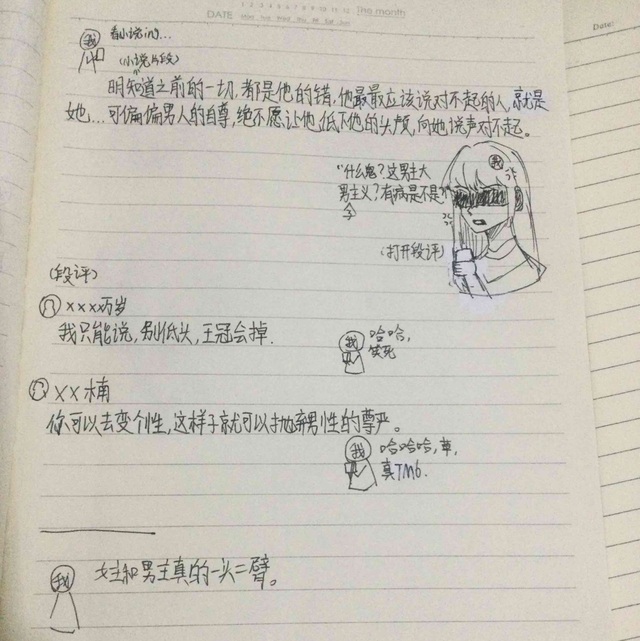 DATE
The month
1 2 3 4 5 6 7 8 9 10 11 12
Date:
我
看小说ing...
(小说片段)
明知道之前的一切,都是他的错,他最最应该说对不起的人,就是
她...可偏偏男人的自尊,绝不愿让他,低下他的头颅,向她说声对不起。
我
"什么鬼?这男主大
男主义?有病是不是?"
子
(打开段评)
(段评)
xxx万岁
我只能说,别低头,王冠会掉.
我
哈哈,
笑死
XX楠
你可以去变个性,这样子就可以抛弃男性的尊严。
我
哈哈哈,草,
真TM6.
我
女主和男主真的一头二臂。